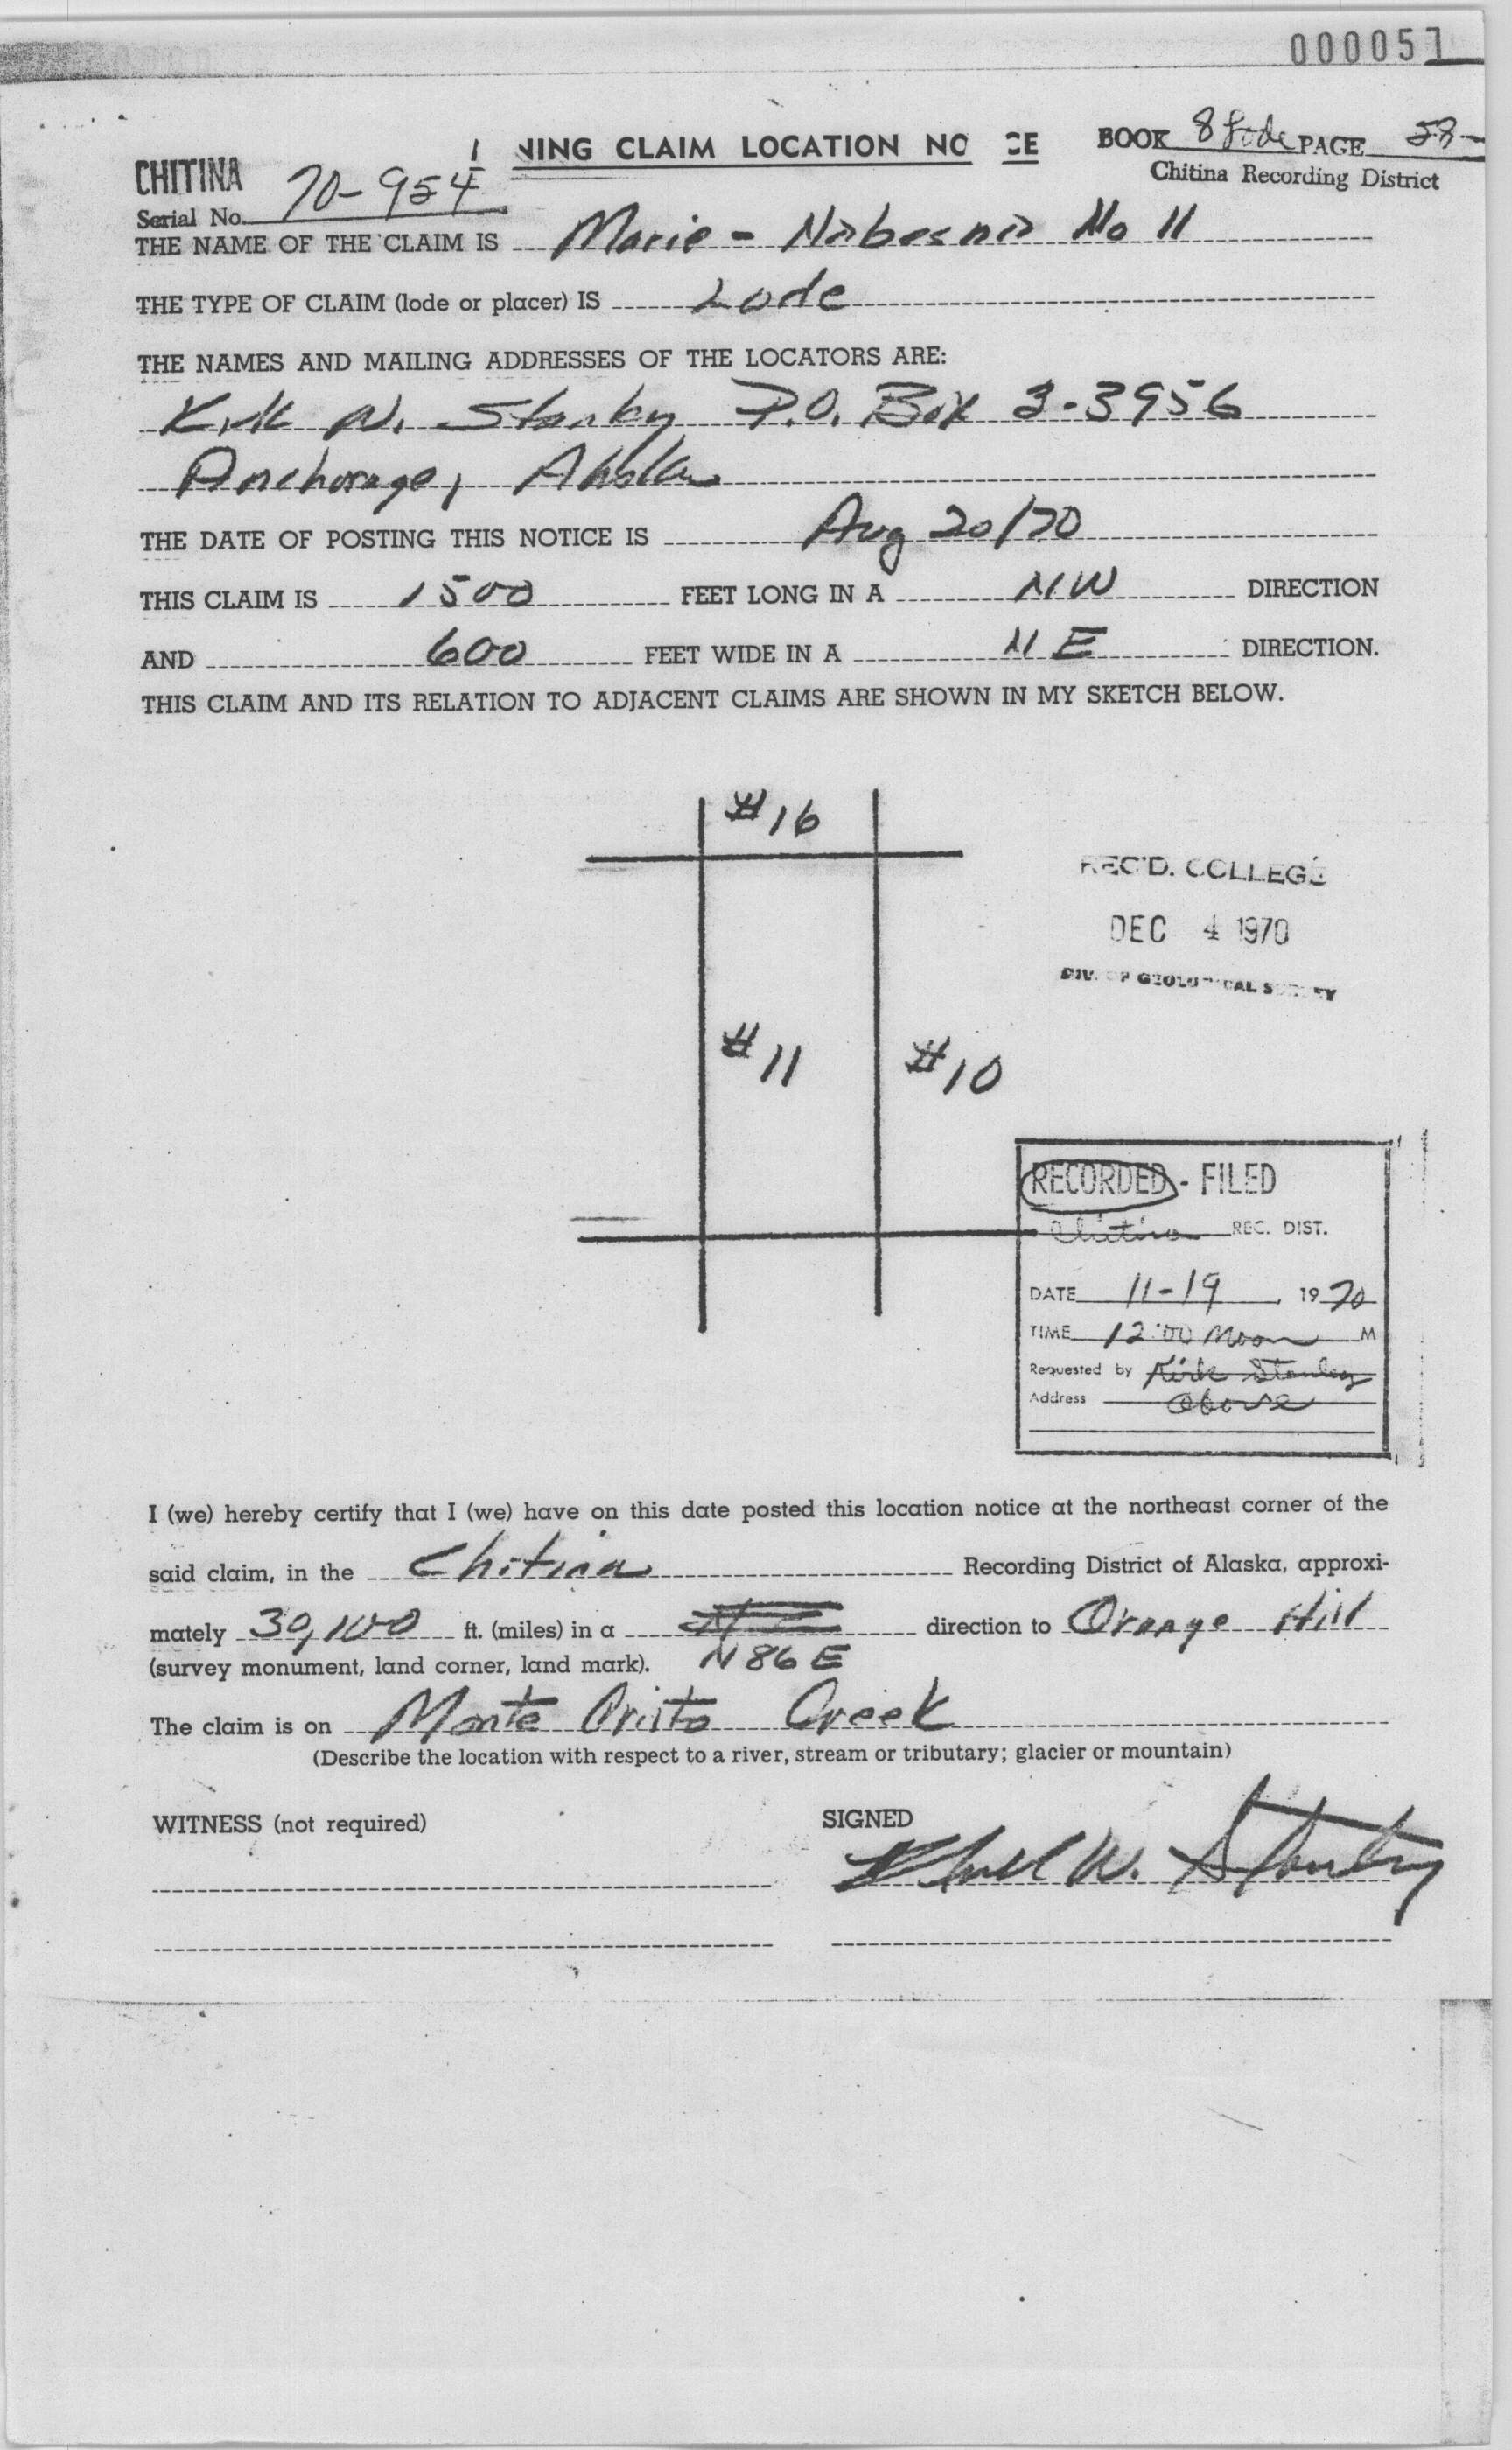 000057
NING CLAIM LOCATION NO CE
BOOK 8 Lode PAGE 58-
CHITINA
Chitina Recording District
Serial No. 70-954
THE NAME OF THE CLAIM IS Marie - Nabesna No 11
THE TYPE OF CLAIM (lode or placer) IS Lode
THE NAMES AND MAILING ADDRESSES OF THE LOCATORS ARE:
Kirk W. Stanley P.O. Box 3-3956
Anchorage, Alaska
THE DATE OF POSTING THIS NOTICE IS Aug 20/70
THIS CLAIM IS 1500 FEET LONG IN A NW DIRECTION
AND 600 FEET WIDE IN A NE DIRECTION.
THIS CLAIM AND ITS RELATION TO ADJACENT CLAIMS ARE SHOWN IN MY SKETCH BELOW.
#16
REC'D. COLLEGE
DEC 4 1970
DIV. OF GEOLOGICAL SURVEY
#11
#10
RECORDED - FILED
Chitina REC. DIST.
DATE 11-19, 1970
TIME 12:00 Noon M
Requested by Kirk Stanley
Address above
I (we) hereby certify that I (we) have on this date posted this location notice at the northeast corner of the
said claim, in the Chitina Recording District of Alaska, approxi-
mately 39,100 ft. (miles) in a direction to Orange Hill
(survey monument, land corner, land mark). N 86 E
The claim is on Monte Cristo Creek
(Describe the location with respect to a river, stream or tributary; glacier or mountain)
WITNESS (not required)
SIGNED
W. Stanley